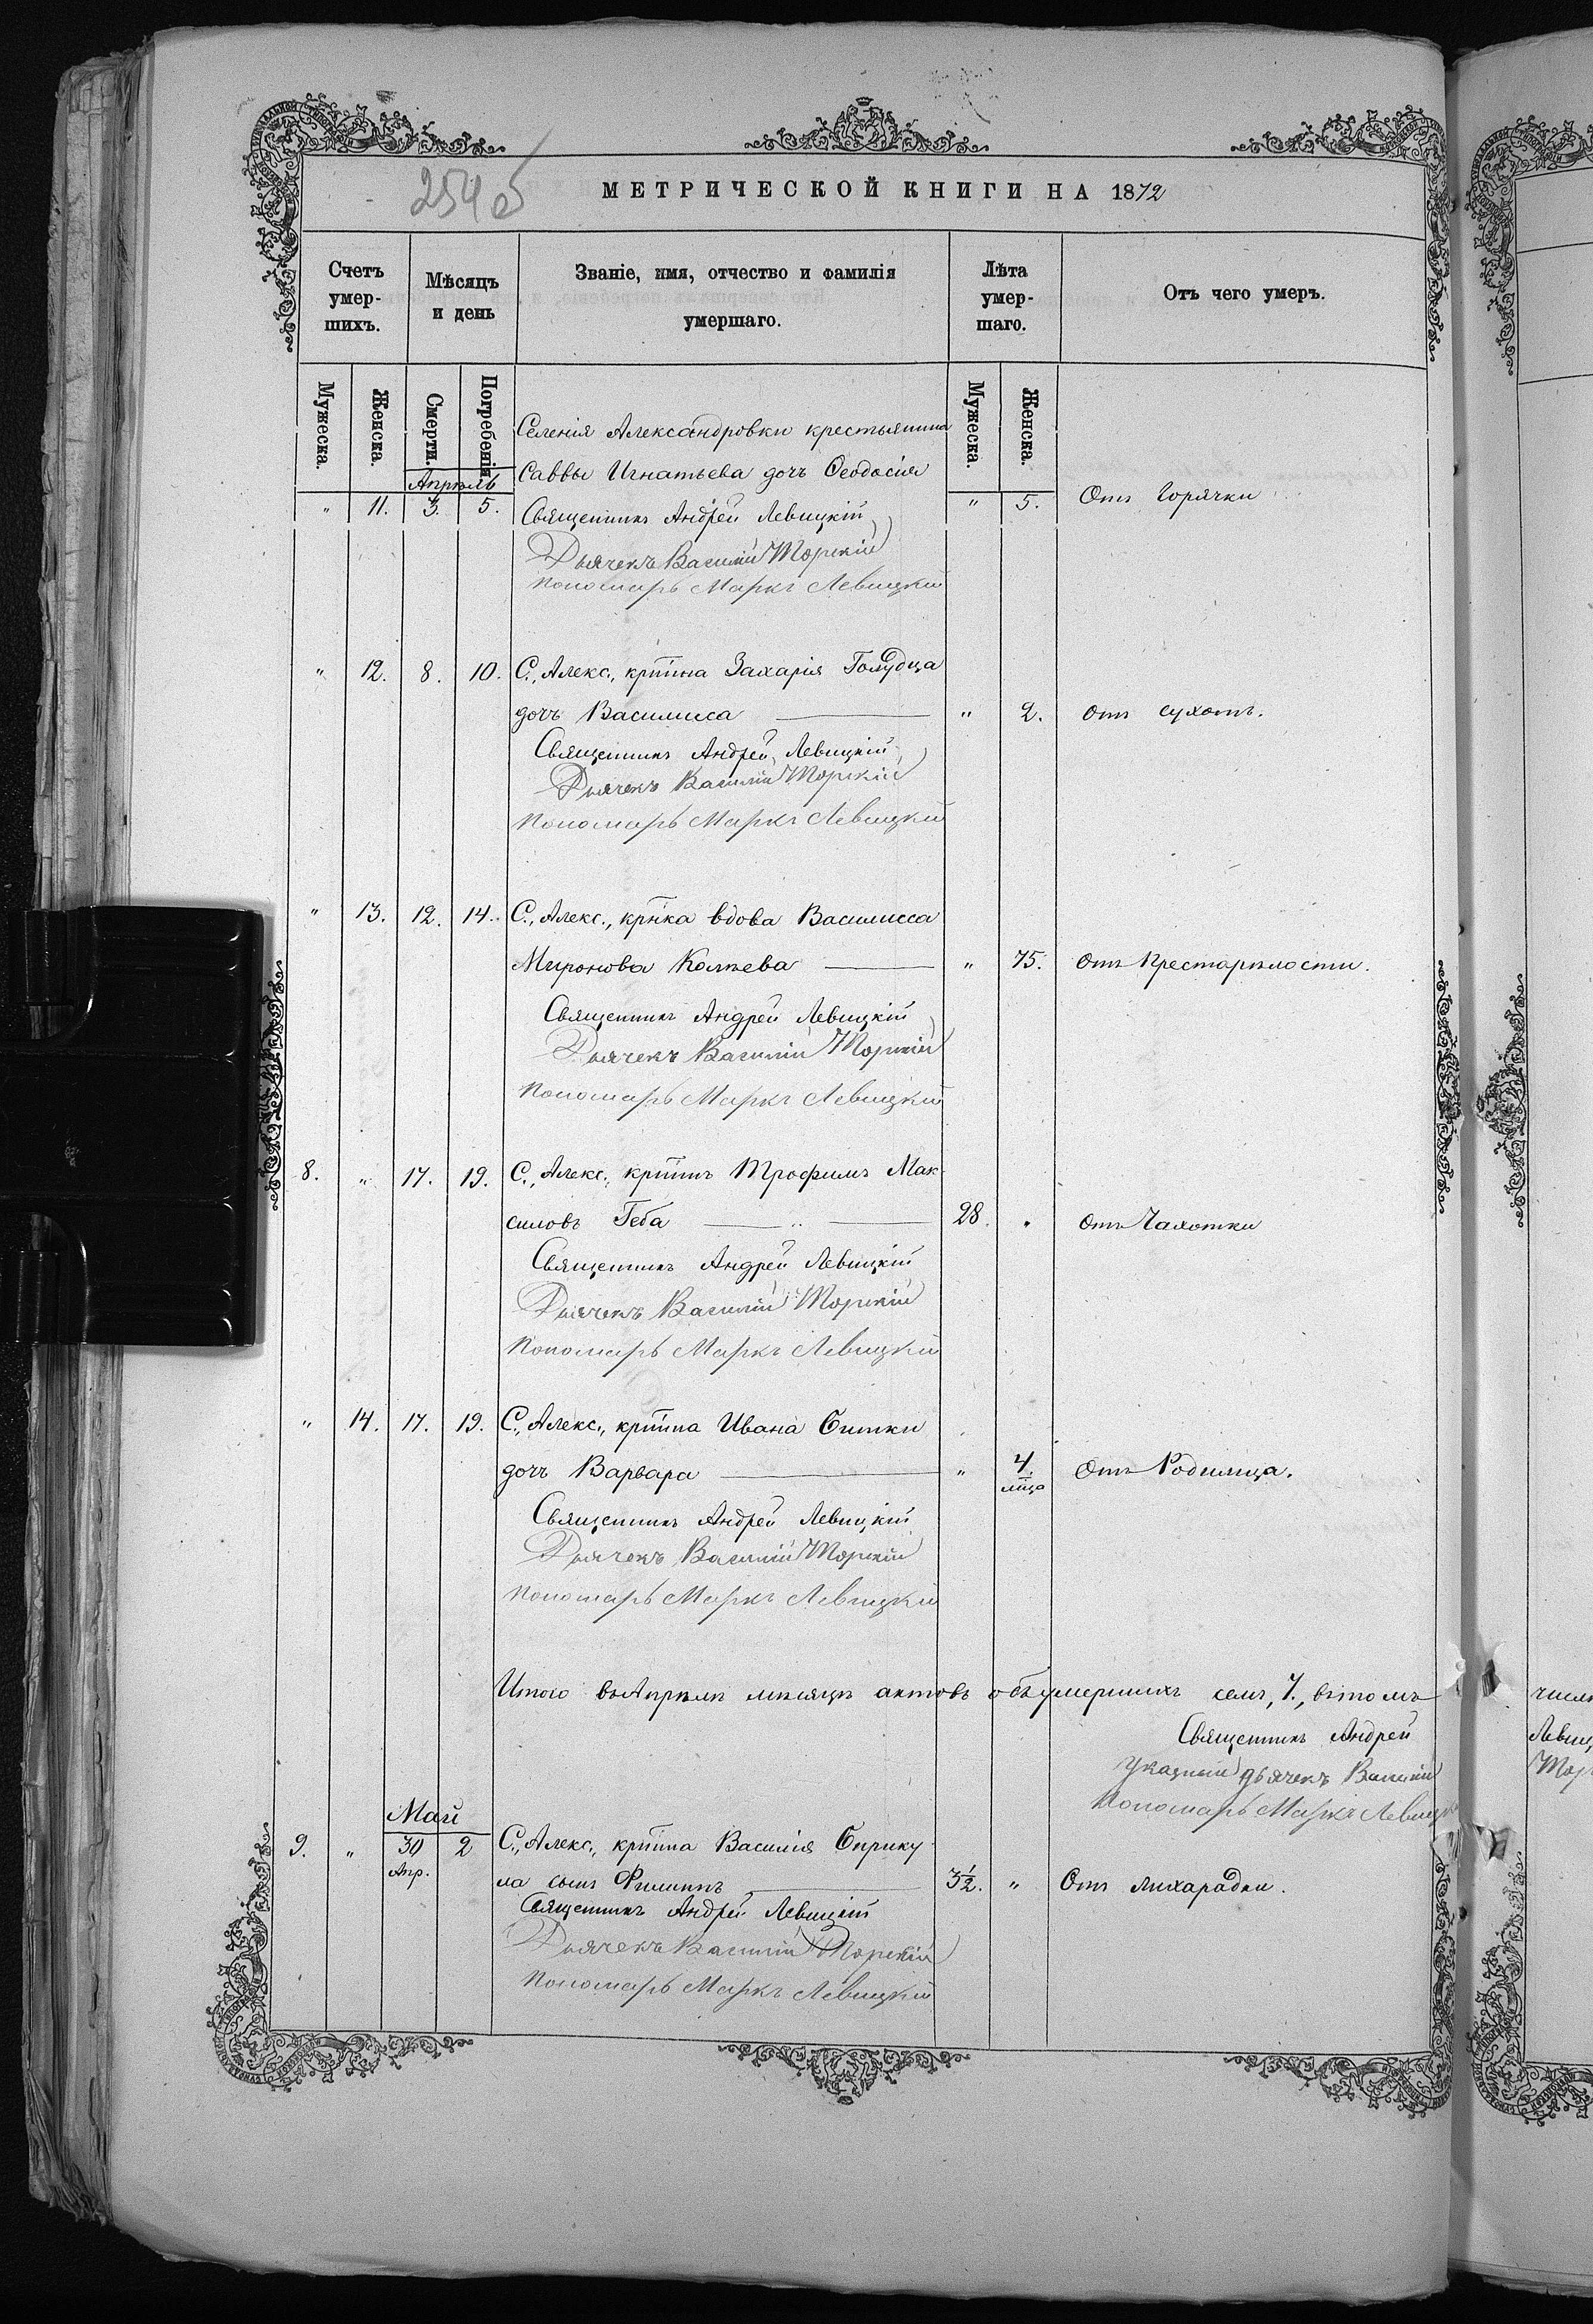 254 об
МЕТРИЧЕСКОЙ КНИГИ НА 1872
Счетъ умер-шихъ.
Мѣсяцъ и день
Званіе, имя, отчество и фамилія умершаго.
Лѣта умер-шаго.
Отъ чего умеръ.
Мужеска. Женска. Смерти. Погребенія. Мужеска. Женска.
Селенія Александровки крестьянина
Апрѣль Саввы Игнатьева дочь Ѳеодосія
" 11. 3. 5. " 5. Отъ Горячки
Священникъ Андрей Левицкій
Дьячекъ Василій Торскій
Пономарь Маркъ Левицкій
" 12. 8. 10. С., Алекс., крт̃ина Захарія Голубца
дочь Василисса " 2. отъ сухотъ.
Священникъ Андрей Левицкій
Дьячекъ Василій Торскій
Пономарь Маркъ Левицкій
" 13. 12. 14. С., Алекс., крт̃ка вдова Василисса
Миронова " 75. отъ Престарѣлости.
Священникъ Андрей Левицкій
Дьячекъ Василій Торскій
Пономарь Маркъ Левицкій
8. " 17. 19. С., Алекс., крт̃инъ Трофимъ Мак
симовъ Геба 28. " отъ Чахотки
Священникъ Андрей Левицкій
Дьячекъ Василій Торскій
Пономарь Маркъ Левицкій
" 14. 17. 19. С., Алекс., крт̃ина Ивана
дочь Варвара " 4. мц̃а отъ Родимца.
Священникъ Андрей Левицкій
Дьячекъ Василій Торскій
Пономарь Маркъ Левицкій
Итого въ Апрѣлѣ мѣсяцѣ актовъ объ умершихъ семь, 7., въ томъ
Священникъ Андрей
Указный дьячекъ Василій
Пономарь Маркъ Левицкій
Май
9. " 30 Апр. 2 С., Алекс., крт̃ина Василія
ла сынъ Филиппъ 3½. " Отъ лихарадки.
Священникъ Андрей Левицкій
Дьячекъ Василій Торскій
Пономарь Маркъ Левицкій